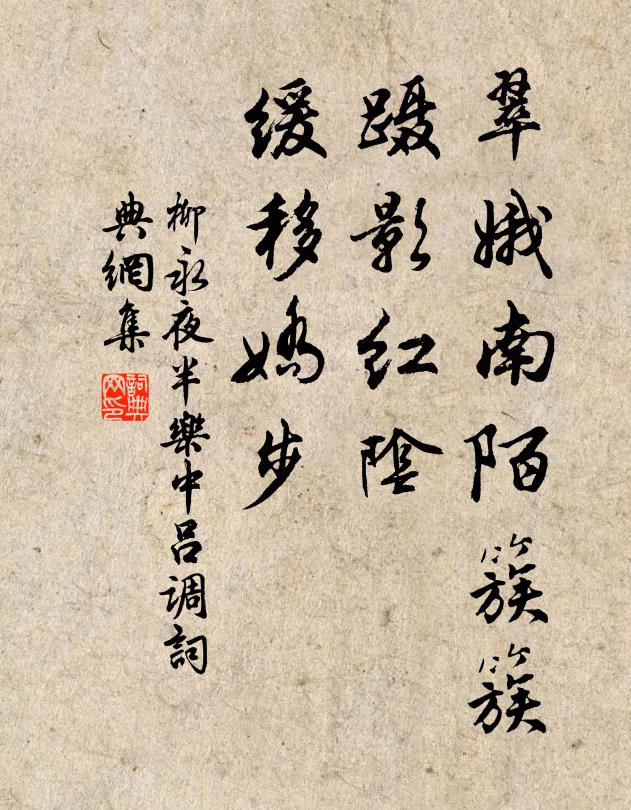 翠娥南陌簇簇
蹑影紅陰
缓移嬌步
柳永夜半樂中吕调詞
典網集
詞典网印